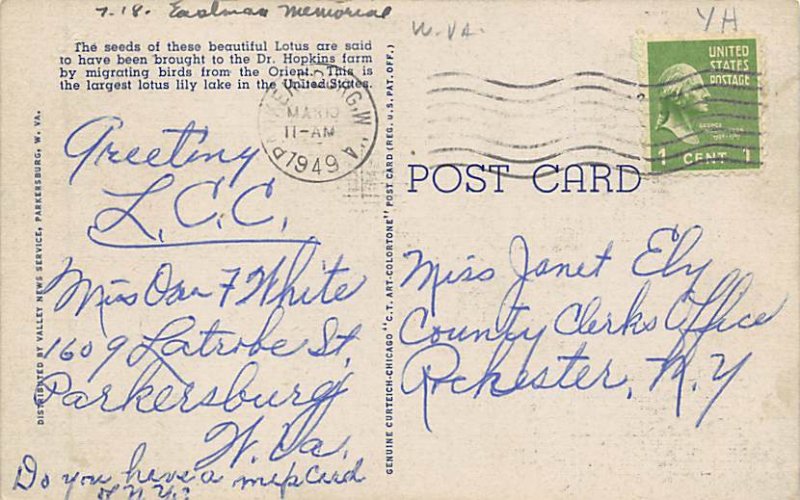 7.18. Eastman Memorial
W. VA.
YH
The seeds of these beautiful Lotus are said
to have been brought to the Dr. Hopkins farm
by migrating birds from the Orient. This is
the largest lotus lily lake in the United States.
PARKERSBURG, W. VA
MAR
11-AM
1949
UNITED
STATES
POSTAGE
1 CENT 1
POST CARD
Greeting
L.C.C.
Miss Ora F White
1609 Latrobe St.
Parkersburg
W. Va.
Do you have a map Card
of N.Y.?
Miss Janet Ely
County Clerks Office
Rochester, N.Y
DISTRIBUTED BY VALLEY NEWS SERVICE, PARKERSBURG, W. VA.
GENUINE CURTEICH-CHICAGO "C.T. ART-COLORTONE" POST CARD (REG. U.S. PAT. OFF.)